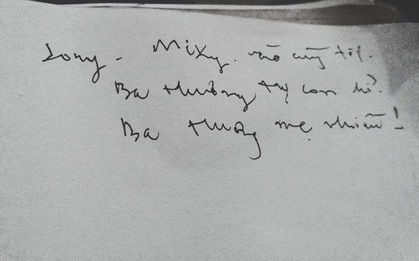 Long - Mixy. vào cũng tốt.
Ba thương con
Ba thương mẹ nhiều!